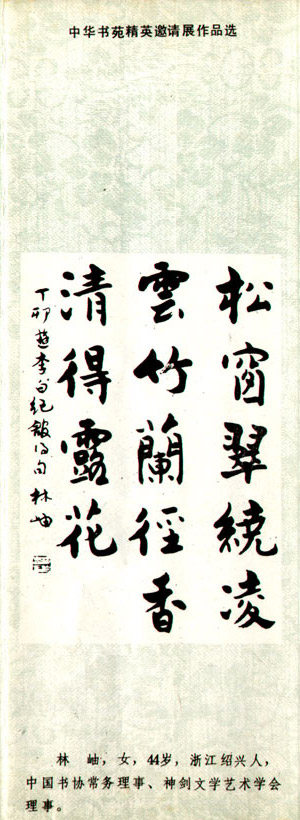 中华书苑精英邀请展作品选
松窗翠繞凌
雲竹蘭徑香
清得露花
丁卯遊李白纪館得句 林岫
林　岫，女，44岁，浙江绍兴人，
中国书协常务理事、神剑文学艺术学会
理事。